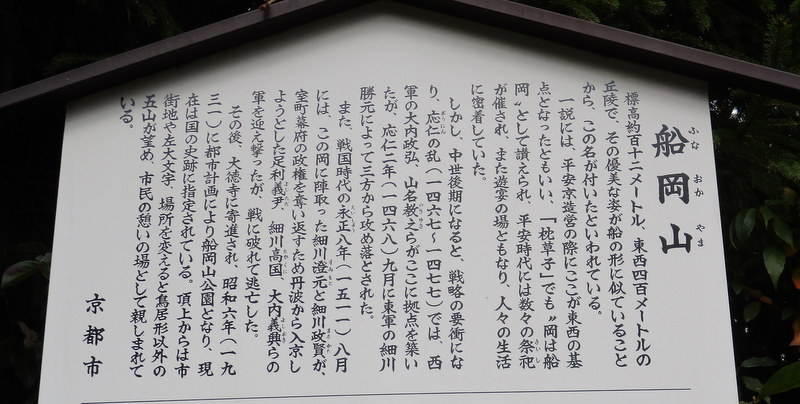 船岡山
ふな おか やま
標高約百十二メートル、東西四百メートルの
丘陵で、その優美な姿が船の形に似ていること
から、この名が付いたといわれている。
一説には、平安京造営の際にここが東西の基
点となったともいい、「枕草子」でも〝岡は船
岡〟として讃えられ、平安時代には数々の祭祀
が催され、また遊宴の場ともなり、人々の生活
に密着していた。
しかし、中世後期になると、戦略の要衝にな
り、応仁の乱(一四六七〜一四七七)では、西
軍の大内政弘、山名教之らがここに拠点を築い
たが、応仁二年(一四六八)九月に東軍の細川
勝元によって三方から攻め落とされた。
また、戦国時代の永正八年(一五一一)八月
には、この岡に陣取った細川澄元と細川政賢が、
室町幕府の政権を奪い返すため丹波から入京し
ようとした足利義尹、細川高国、大内義興らの
軍を迎え撃ったが、戦に破れて逃亡した。
その後、大徳寺に寄進され、昭和六年(一九
三一)に都市計画により船岡山公園となり、現
在は国の史跡に指定されている。頂上からは市
街地や左大文字、場所を変えると鳥居形以外の
五山が望め、市民の憩いの場として親しまれて
いる。
京都市